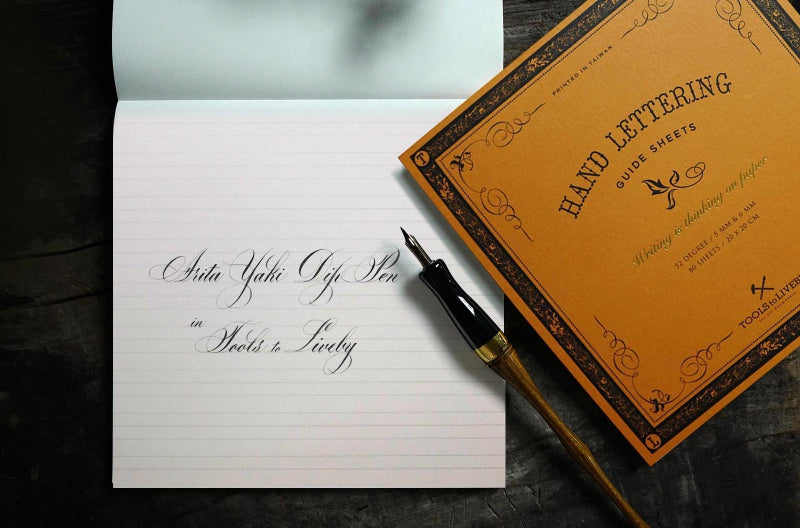 Arita Yaki Dip Pen
in Tools to Liveby
PRINTED IN TAIWAN
HAND LETTERING
GUIDE SHEETS
Writing is thinking on paper
52 DEGREE / 5 MM & 6 MM
80 SHEETS / 20 X 20 CM
TOOLS to LIVEBY
T
L